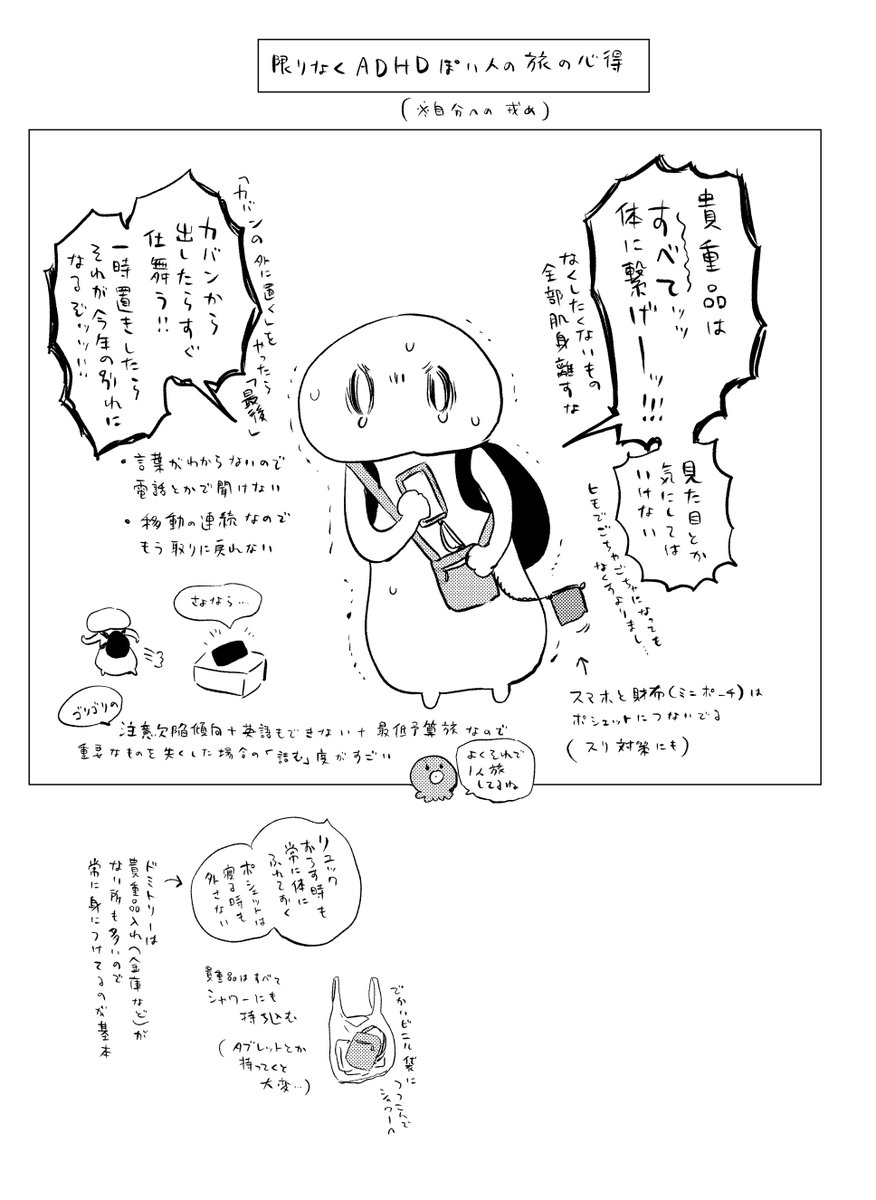 限りなくADHDぽい人の旅の心得
(※自分への戒め)
貴重品は
すべてッッ
体に繋げーッ!!!
なくしたくないもの
全部肌身離すな
見た目とか
気にしては
いけない
ヒモでごちゃごちゃになっても
なくすよりまし…
「カバンの外に置く」をやったら「最後」
カバンから
出したらすぐ
仕舞う!!
一時置きしたら
それが今年の別れに
なるぞッッ!!
・言葉がわからないので
電話とかで聞けない
・移動の連続なので
もう取りに戻れない
さよなら…
スマホと財布(ミニポーチ)は
ポシェットにつないでる
(スリ対策にも)
ゴリゴリの
注意欠陥傾向+英語もできない+最低予算旅なので
重要なものを失くした場合の「詰む」度がすごい
よくそれで
1人旅
してるね
リュック
おろす時も
常に体に
ふれておく
ポシェットは
寝る時も
外さない
→
ドミトリーは
貴重品入れ(金庫など)が
ない所も多いので
常に身につけてるのが基本
貴重品はすべて
シャワーにも
持ち込む
(タブレットとか
持ってくと
大変…)
でかいビニル袋に
つっこんで
シャワーへ